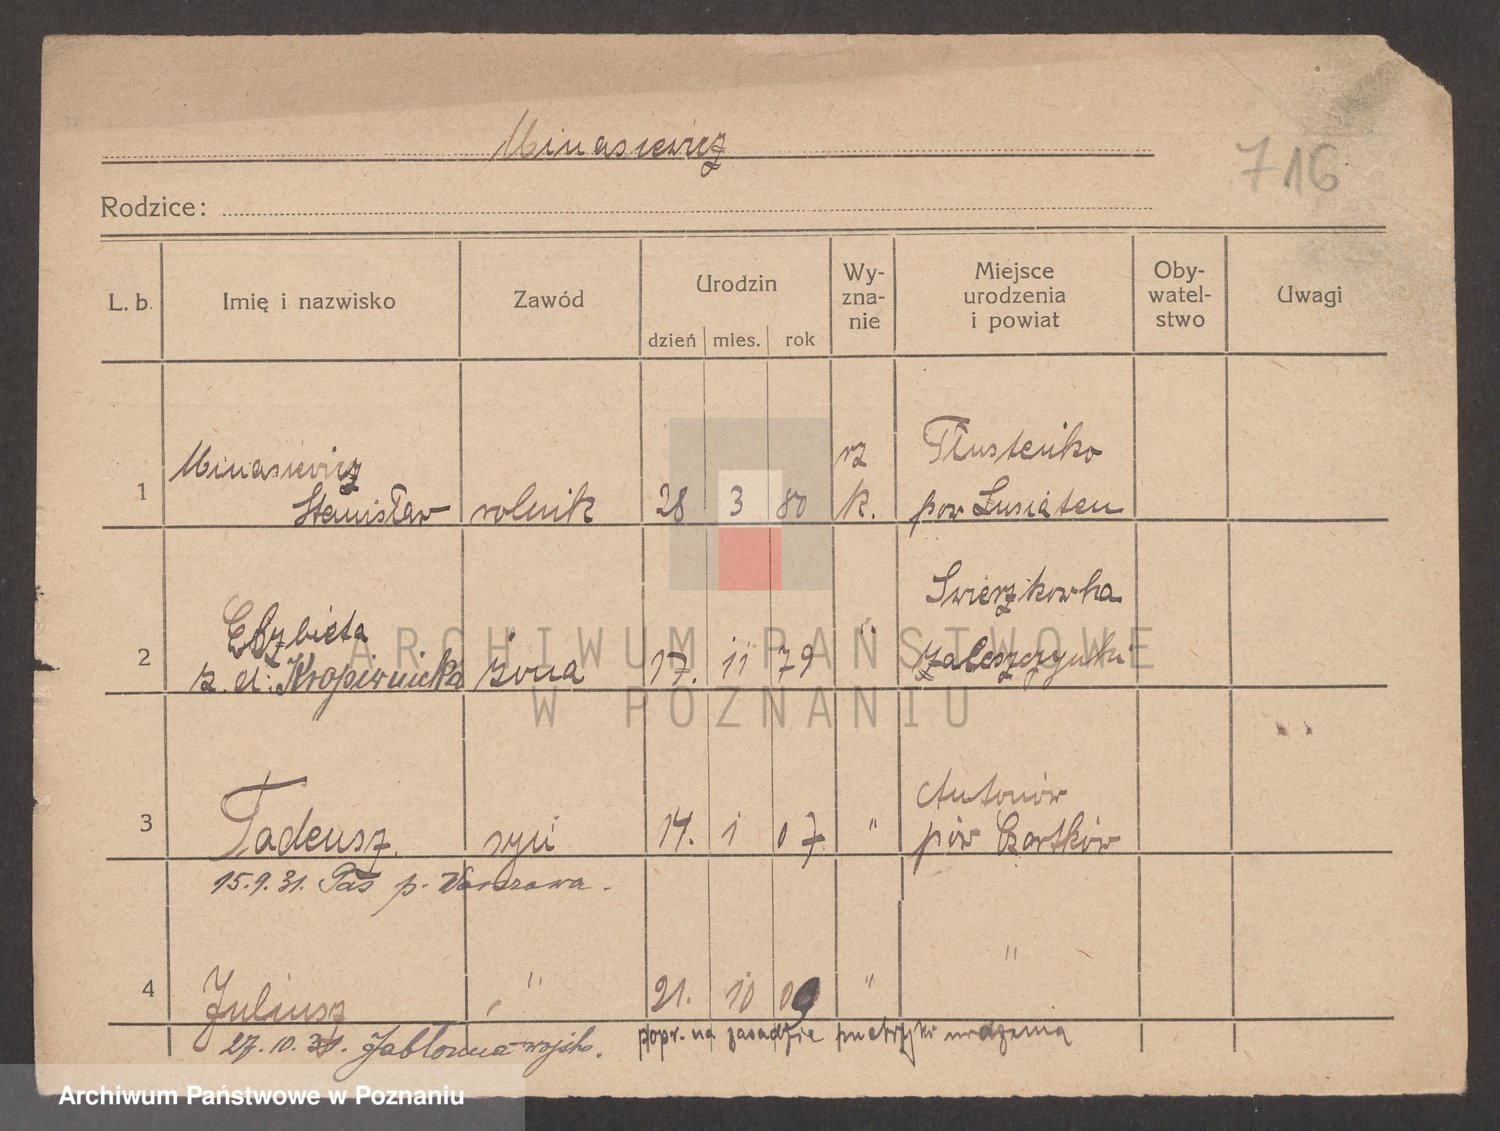 Minasiewicz
716
Rodzice:
L. b. Imię i nazwisko Zawód Urodzin dzień mies. rok Wy-zna-nie Miejsce urodzenia i powiat Oby-watel-stwo Uwagi
Minasiewicz rz Tłusteńko
1 Stanisław rolnik 28 3 80 k. pow Husiaten
Elżbieta Swierzkowka
2 z d. Kropiwnicka żona 17. 11 79 " Zaleszczycki
Antonów
3 Tadeusz syn 14. 1 07 " pow Czortków
15.9.31. Pas p. Warszawa.
4 Juliusz " 21. 10 09 " "
27.10.31. Jabłonna wojsko. popr. na zasadzie metryki urodzenia
ARCHIWUM PAŃSTWOWE
W POZNANIU
Archiwum Państwowe w Poznaniu